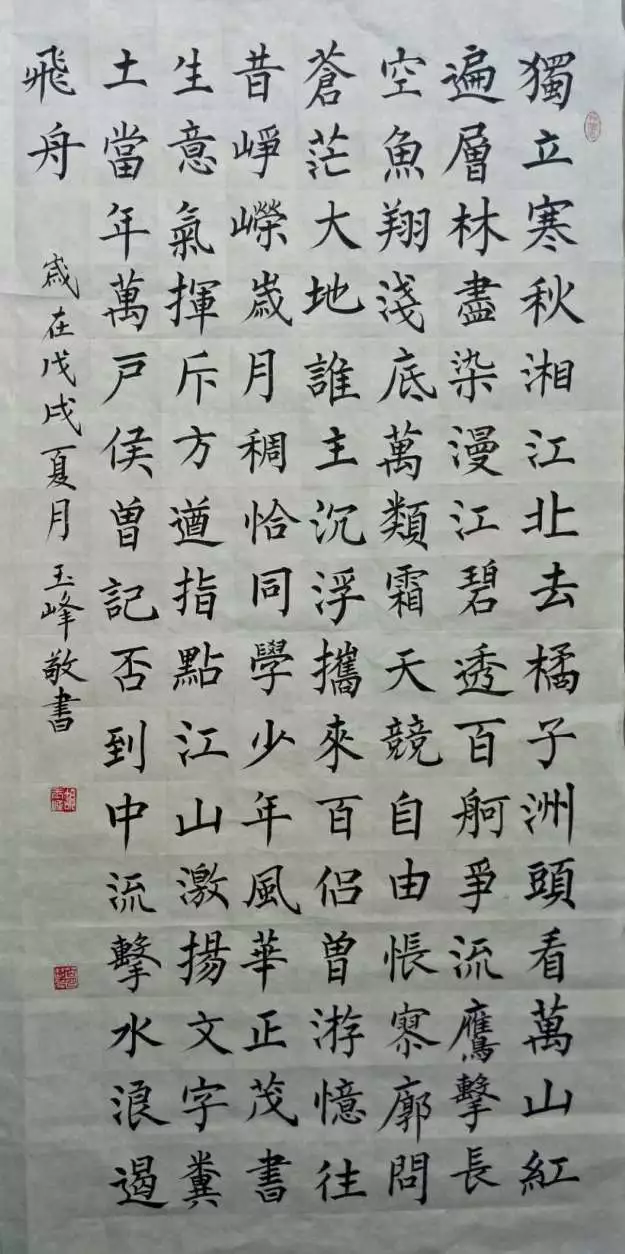 獨立寒秋湘江北去橘子洲頭看萬山紅
遍層林盡染漫江碧透百舸爭流鷹擊長
空魚翔淺底萬類霜天競自由悵寥廓問
蒼茫大地誰主沉浮攜來百侶曾游憶往
昔崢嶸歲月稠恰同學少年風華正茂書
生意氣揮斥方遒指點江山激揚文字糞
土當年萬戶侯曾記否到中流擊水浪遏
飛舟
歲在戊戌夏月玉峰敬書